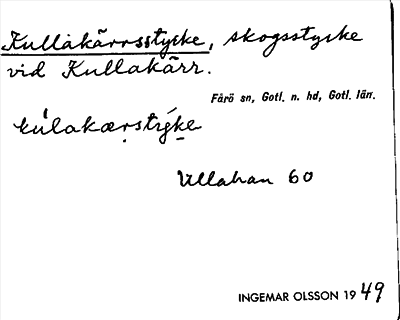 Kullakärrsstycke, skogsstycke
vid Kullakärr.
Fårö sn, Gotl. n. hd, Gotl. län.
kúlakærstýke
Ullahau 60
INGEMAR OLSSON 1949